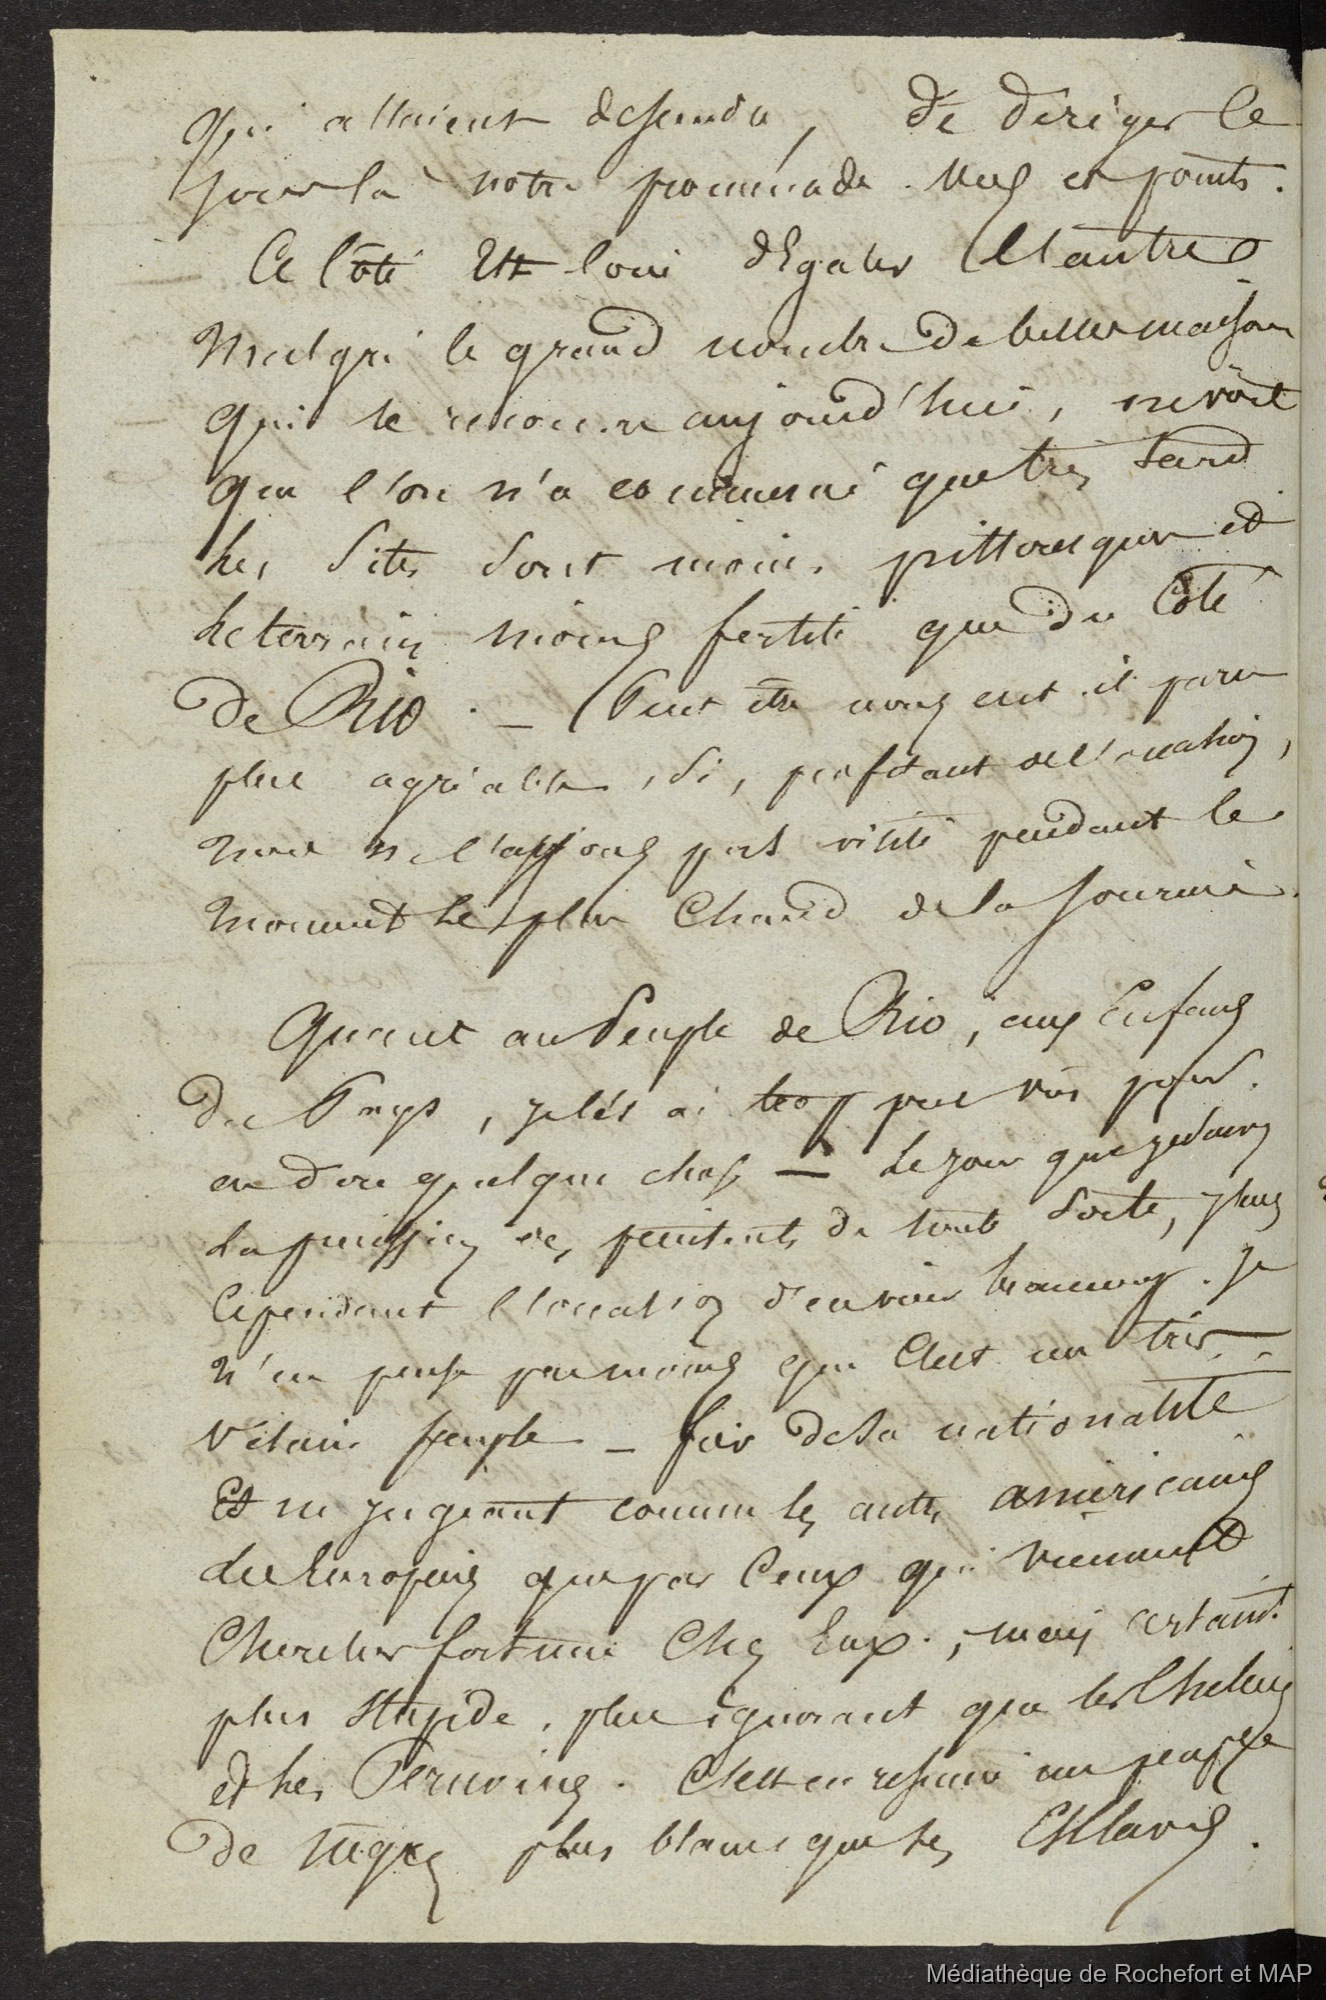 qui allaient descendre, de diriger ce
jour la notre promenade vers ce point.
Ce Côté Est loin d'Egaler l'autre
Malgré le grand nombre de belles maisons
qui le recouvre aujourd'hui, on voit
que l'on n'a commencé que très tard
les Sites sont moins pittoresques et
le terrain moins fertile que du Côté
de Rio. — Peut être nous eut il paru
plus agréable, Si, profitant de l'occasion,
nous ne l'assions pas visité pendant le
moment le plus Chaud de la Journée.
Quant au Peuple de Rio, aux Enfans
du Pays, je les ai trop peu vus pour
en dire quelque chose — le jour que je suivis
la procession des penitents de toute Sorte, j'eus
Cependant l'occasion d'en voir beaucoup. Je
n'en pense pas moins que C'est un très
vilain peuple — fier de sa nationalité
Et ne jugeant comme les autres américains
les Européens que par Ceux qui viennent
Chercher fortune Chez Eux, mais certaint.
plus Stupide, plus ignorant que les Chiliens
et les Péruviens. C'est en résumé un peuple
de nègres plus blancs que les Esclaves.
Médiathèque de Rochefort et MAP